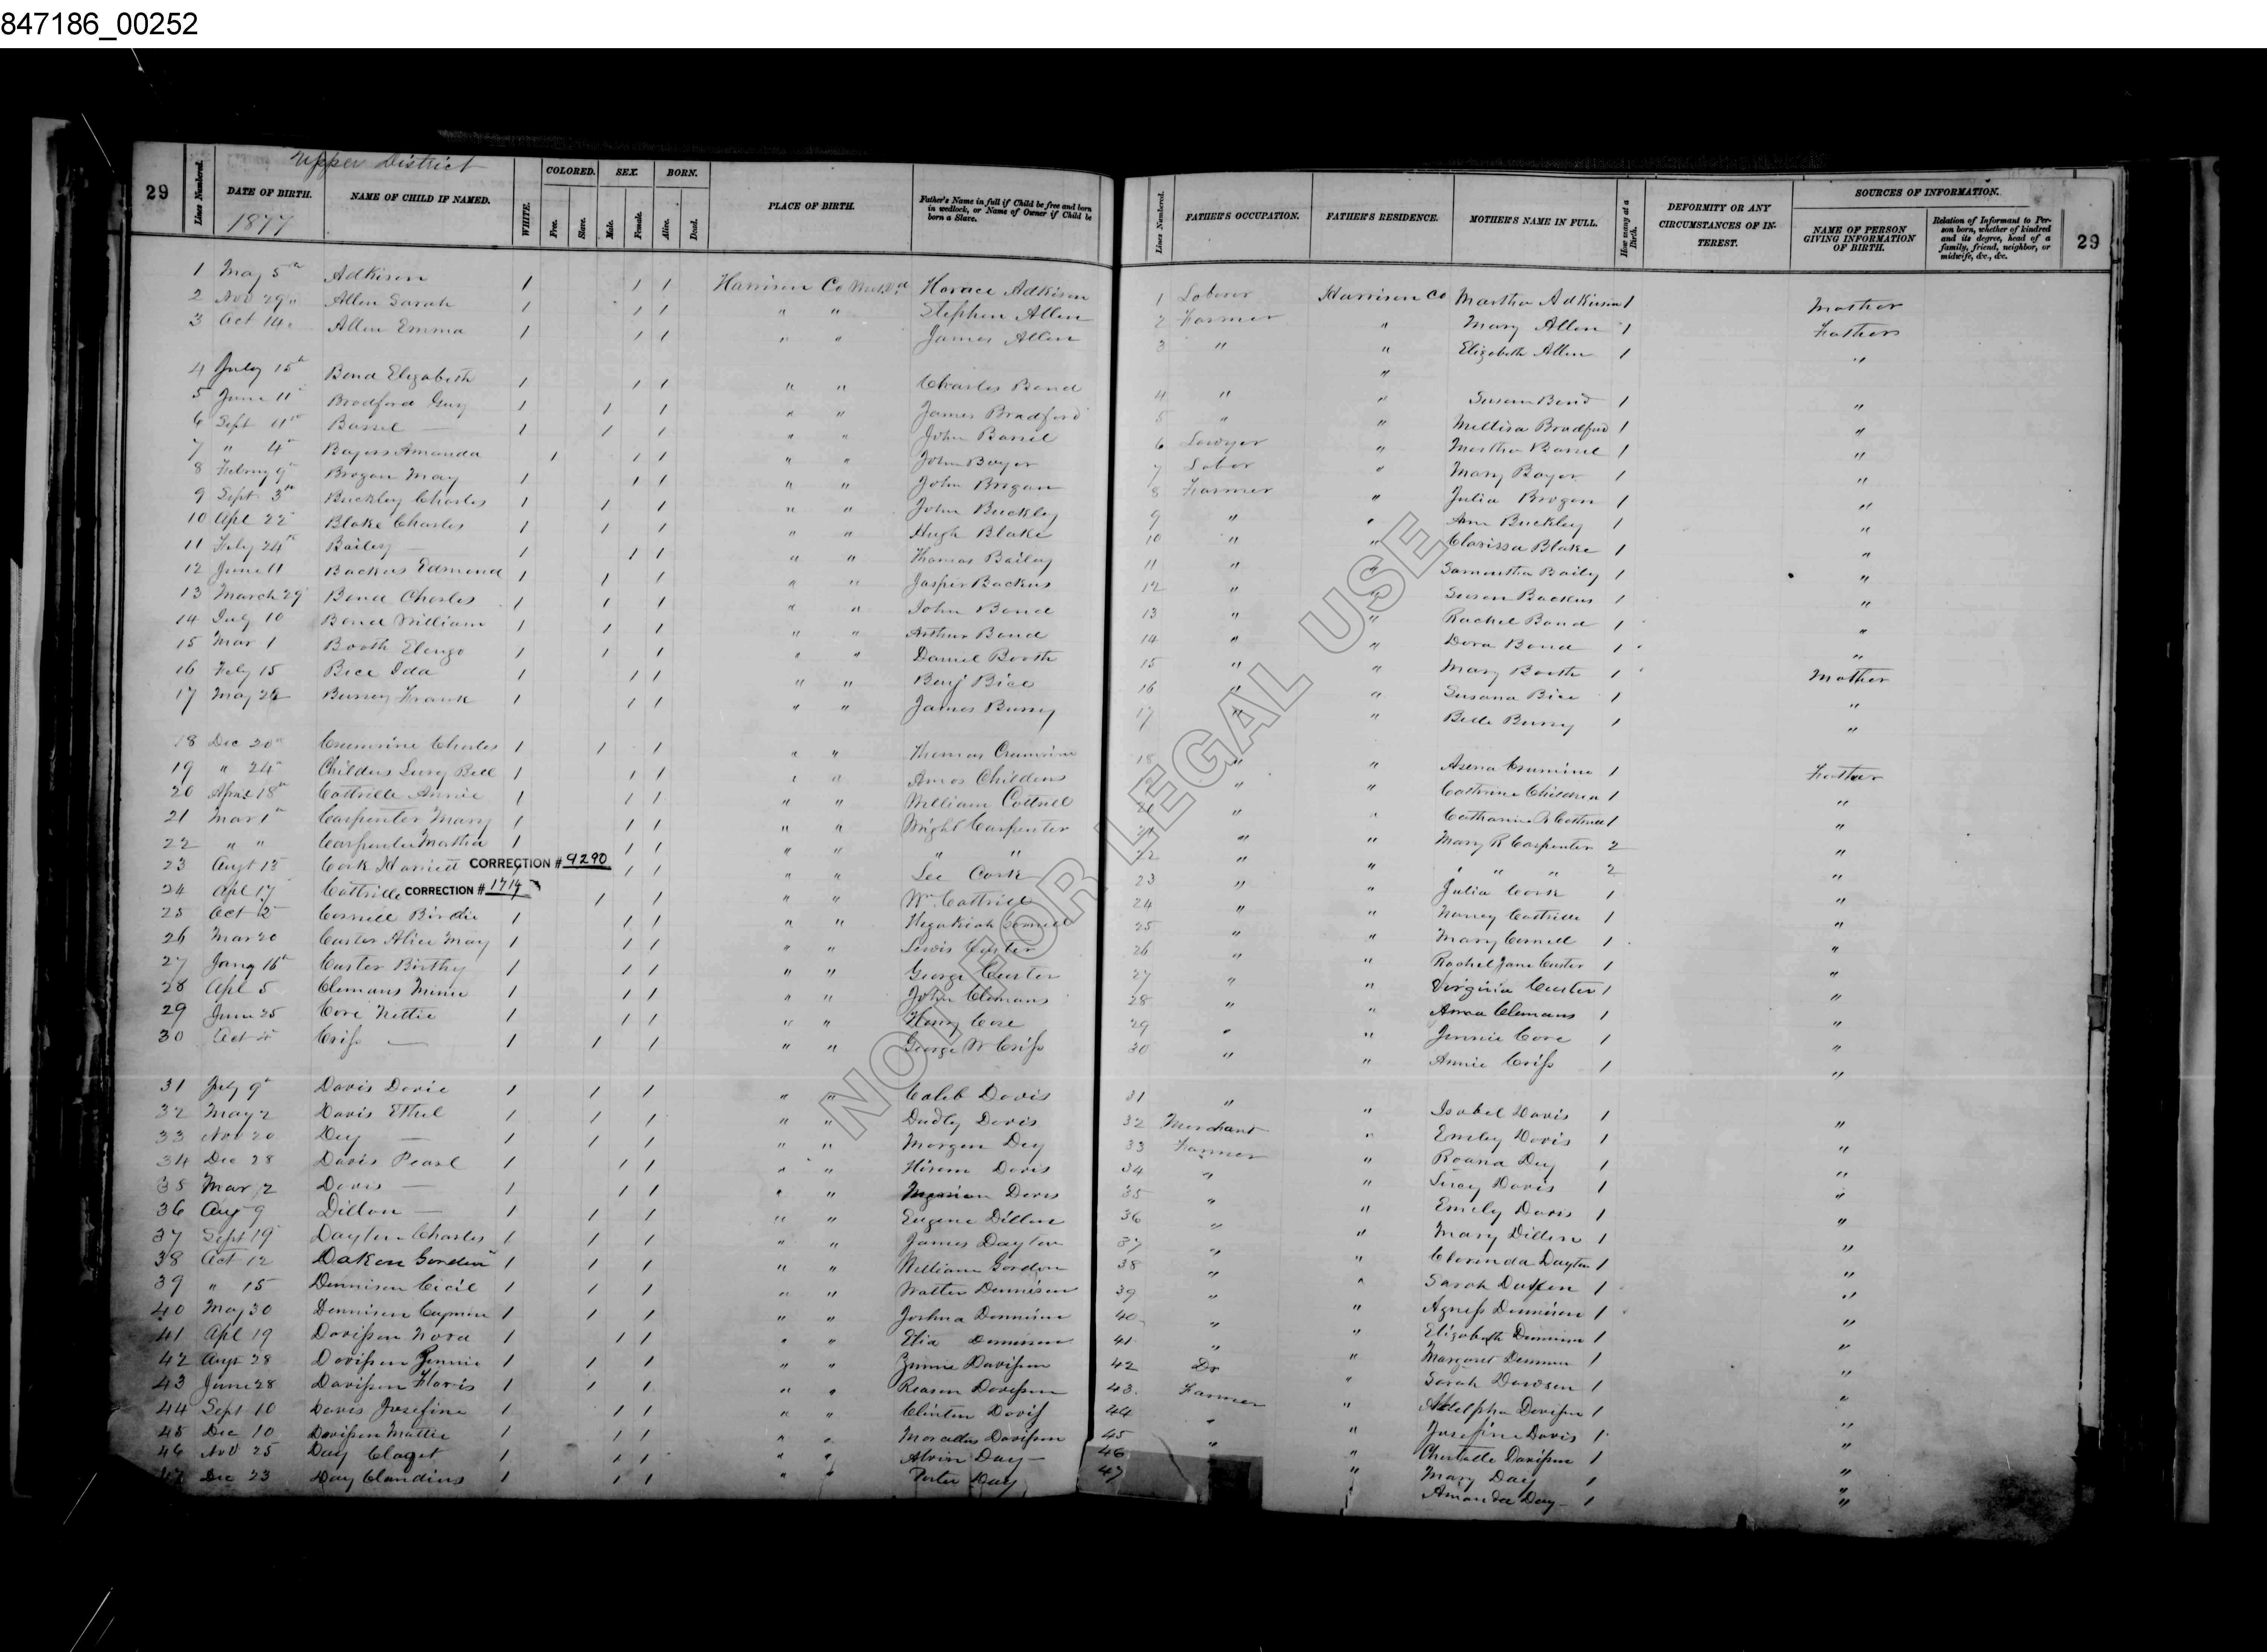 847186_00252
Upper District
29
Lines Numbered.
DATE OF BIRTH.
1877
NAME OF CHILD IF NAMED.
WHITE.
COLORED.
Free.
Slave.
SEX.
Male.
Female.
BORN.
Alive.
Dead.
PLACE OF BIRTH.
Father's Name in full if Child be free and born
in wedlock, or Name of Owner if Child be
born a Slave.
Lines Numbered.
FATHER'S OCCUPATION.
FATHER'S RESIDENCE.
MOTHER'S NAME IN FULL.
How many at a Birth.
DEFORMITY OR ANY
CIRCUMSTANCES OF IN-
TEREST.
SOURCES OF INFORMATION.
NAME OF PERSON
GIVING INFORMATION
OF BIRTH.
Relation of Informant to Per-
son born, whether of kindred
and its degree, head of a
family, friend, neighbor, or
midwife, &c., &c.
29
1 May 5th Adkison 1 1 1 Harrison Co Horace Adkison 1 Laborer Harrison Co Martha Adkison 1 Mother
2 Nov 29 " Allen Sarah 1 1 1 " " Stephen Allen 2 Farmer " Mary Allen 1 Father
3 Oct 14 Allen Emma 1 1 1 " " James Allen 3 " " Elizabeth Allen 1 "
4 July 15th Bond Elizabeth 1 1 1 " " Charles Bond 4 " " Susan Bond 1 "
5 June 11 Bradford Guy 1 1 1 " " James Bradford 5 " " Mellisa Bradford 1 "
6 Sept 11th Bassel — 1 1 1 " " John Bassel 6 Lawyer " Martha Bassel 1 "
7 " 4th Boyers Amanda 1 1 1 " " John Boyer 7 Labor " Mary Boyer 1 "
8 9th Brogan May 1 1 1 " " John Brogan 8 Farmer " Julia Brogan 1 "
9 Sept 3th Buckley Charles 1 1 1 " " John Buckley 9 " " Ann Buckley 1 "
10 Apl 22 Blake Charles 1 1 1 " " Hugh Blake 10 " " Clarissa Blake 1 "
11 Feby 24th Bailey — 1 1 1 " " Thomas Bailey 11 " " Samantha Baily 1 "
12 June 11 Backus Edmond 1 1 1 " " Jasper Backus 12 " " Susan Backus 1 "
13 March 29 Bond Charles 1 1 1 " " John Bond 13 " " Rachel Bond 1 "
14 July 10 Bond William 1 1 1 " " Arthur Bond 14 " " Dora Bond 1 "
15 Mar 1 Booth 1 1 1 " " Daniel Booth 15 " " Mary Booth 1 Mother
16 Feby 15 Bice Ida 1 1 1 " " Benj Bice 16 " " Susana Bice 1 "
17 May 26 Frank 1 1 1 " " James 17 " " Belle 1 "
18 Dec 20th Charles 1 1 1 " " Thomas 18 " " 1 Father
19 " 24 Childers Lucy Bell 1 1 1 " " Amos Childers " " Cathrine Childers 1 "
20 April 18th Cottrille Annie 1 1 1 " " William Cottrill " " Catharine Cottrill 1 "
21 Mar 1th Carpenter Mary 1 1 1 " " Wright Carpenter " " Mary R Carpenter 2 "
22 " " Carpenter Martha 1 1 1 " " " " 22 " " " " " 2 "
23 Augt 13 Cork Harriett CORRECTION # 9290 1 1 " " Lee Cork 23 " " Julia Cork 1 "
24 Apl 17 Cottrille CORRECTION # 1714 1 1 " " Wm Cottrill 24 " " Nancy Cottrille 1 "
25 Oct 2 Cornell Birdie 1 1 1 " " Hezekiah Cornell 25 " " Mary Cornell 1 "
26 Mar 20 Custer Alice May 1 1 1 " " Lewis Custer 26 " " Rachel Jane Custer 1 "
27 Jany 16th Custer Birthy 1 1 1 " " George Custer 27 " " Virginia Custer 1 "
28 Apl 5 Clemans Minie 1 1 1 " " John Clemans 28 " " Clemans 1 "
29 June 25 Core Nettie 1 1 1 " " Henry Core 29 " " Jennie Core 1 "
30 Oct Criss — 1 1 1 " " George W Criss 30 " " Annie Criss 1 "
31 July 9th Davis Dovie 1 1 1 " " Caleb Davis 31 " " Isabel Davis 1 "
32 May 2 Davis Ethel 1 1 1 " " Dudly Davis 32 Merchant " Emily Davis 1 "
33 Nov 20 Dey — 1 1 1 " " Morgan Dey 33 Farmer " Roana Dey 1 "
34 Dec 28 Davis Pearl 1 1 1 " " Hiram Davis 34 " " Lucy Davis 1 "
35 Mar 2 Davis — 1 1 1 " " Davis 35 " " Emily Davis 1 "
36 Aug 9 Dillon — 1 1 1 " " Eugene Dillon 36 " " Mary Dillon 1 "
37 Sept 19 Dayton Charles 1 1 1 " " James Dayton 37 " " Clorinda Dayton 1 "
38 Oct 12 Daken Gordon 1 1 1 " " William Gordon 38 " " Sarah 1 "
39 " 15 Dennison Cicil 1 1 1 " " Walter Dennison 39 " " Agness Dennison 1 "
40 May 30 Dennison 1 1 1 " " Joshua Dennison 40 " " Elizabeth Dennison 1 "
41 Apl 19 Davisson Nora 1 1 1 " " Elia Dennison 41 " " Margaret 1 "
42 Augt 28 Davisson 1 1 1 " " Davisson 42 Dr " Sarah 1 "
43 June 28 Davisson Harris 1 1 1 " " Reason Davisson 43 Farmer " Davisson 1 "
44 Sept 10 Davis Josefine 1 1 1 " " Clinton Davis 44 " " Josefine Davis 1 "
45 Dec 10 Davisson Mattie 1 1 1 " " Marcellus Davisson 45 " " Davisson 1 "
46 Nov 25 Day 1 1 1 " " Alvin Day — 46 " Mary Day 1 "
47 Dec 23 Day Claudius 1 1 1 " " Porter Day 47 Amanda Day — 1 "
NOT FOR LEGAL USE